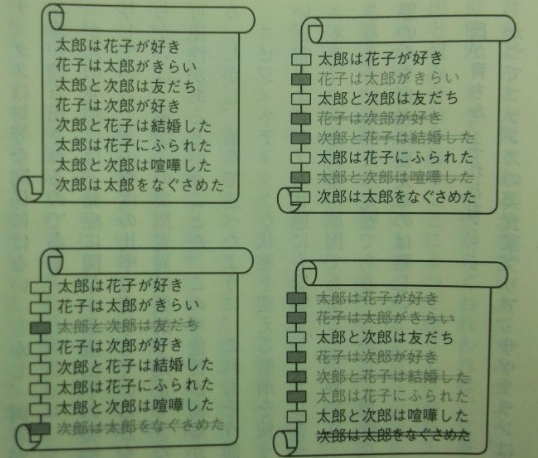 太郎は花子が好き
花子は太郎がきらい
太郎と次郎は友だち
花子は次郎が好き
次郎と花子は結婚した
太郎は花子にふられた
太郎と次郎は喧嘩した
次郎は太郎をなぐさめた
太郎は花子が好き
花子は太郎がきらい
太郎と次郎は友だち
花子は次郎が好き
次郎と花子は結婚した
太郎は花子にふられた
太郎と次郎は喧嘩した
次郎は太郎をなぐさめた
太郎は花子が好き
花子は太郎がきらい
太郎と次郎は友だち
花子は次郎が好き
次郎と花子は結婚した
太郎は花子にふられた
太郎と次郎は喧嘩した
次郎は太郎をなぐさめた
太郎は花子が好き
花子は太郎がきらい
太郎と次郎は友だち
花子は次郎が好き
次郎と花子は結婚した
太郎は花子にふられた
太郎と次郎は喧嘩した
次郎は太郎をなぐさめた